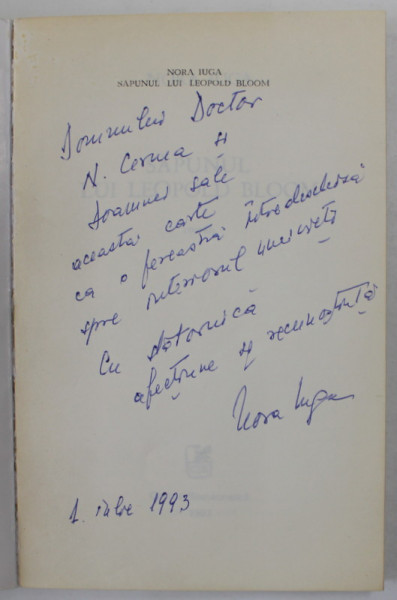 NORA IUGA
SAPUNUL LUI LEOPOLD BLOOM
Domnului Doctor
N. Cernea și
doamnei sale
această carte
ca o fereastră întredeschisă
spre interiorul unei vieți
Cu statornică
afecțiune și recunoștință
Nora Iuga
1. iulie 1993
SAPUNUL
LUI LEOPOLD BLOOM